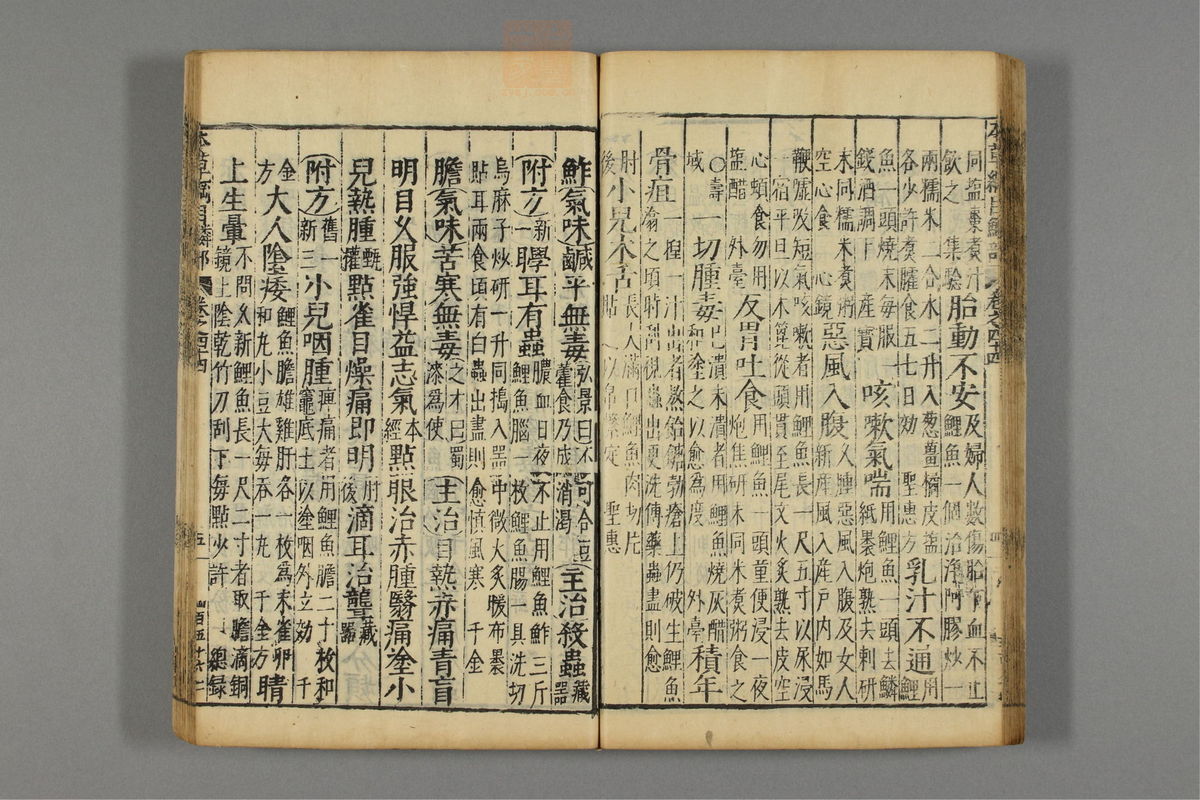 本草綱目鱗部 卷之四十四
同鹽棗煮汁飲之 集驗 胎動不安及婦人數傷胎下血不止鯉魚一個治淨阿膠炒一
兩糯米一合水二升入葱薑橘皮鹽各少許煮臛食五七日効 聖惠方 乳汁不通用鯉
魚一頭燒末每服一錢酒調下 產寶 咳嗽氣喘用鯉魚一頭去鱗紙裹炮熟去刺研
末同糯米煮粥空心食 心鏡 惡風入腹久腫惡風入腹及女人新產風入產戶内如馬
鞭噓吸短氣咳嗽者用鯉魚長一尺五寸以尿浸一宿平旦以木篦從頭貫至尾文火炙熟去皮空
心頓食勿用鹽醋 外臺 反胃吐食用鯉魚一頭童便浸一夜炮焦研末同米煮粥食之
○壽域 一切腫毒已潰未潰者用鯉魚燒灰醋和塗之以愈為度 外臺 積年
骨疽一捏一汁出者熬飴餳勃瘡上仍破生鯉魚之頃時刮視蟲出更洗傅藥蟲盡則愈
肘後 小兒木舌長大滿口鯉魚肉切片貼之以帛繫定 聖惠
鮓氣味鹹平無毒弘景曰不可合豆藿食乃成消渴主治殺蟲藏器
附方新一聤耳有蟲膿血日夜不止用鯉魚鮓三斤鯉魚腦一枚鯉魚腸一具洗切
烏麻子炒研一升同搗入器中微火炙暖布裹貼耳兩食頃有白蟲出盡則愈慎風寒 千金
膽氣味苦寒無毒之才曰蜀漆為使主治目熱赤痛青盲
明目久服強悍益志氣本經點眼治赤腫翳痛塗小
兒熱腫甄權點雀目燥痛即明肘後滴耳治聾藏器
附方舊一新三小兒咽腫痺痛者用鯉魚膽二十枚和竈底土以塗咽外立効 千
金方 大人陰痿鯉魚膽雄雞肝各一枚為末雀卵和丸小豆大每吞一丸 千金方 睛
上生暈不問久新鯉魚長一尺二寸者取膽滴銅鏡上陰乾竹刀刮下每點少許 總錄
本草綱目鱗部 卷之四十四 五